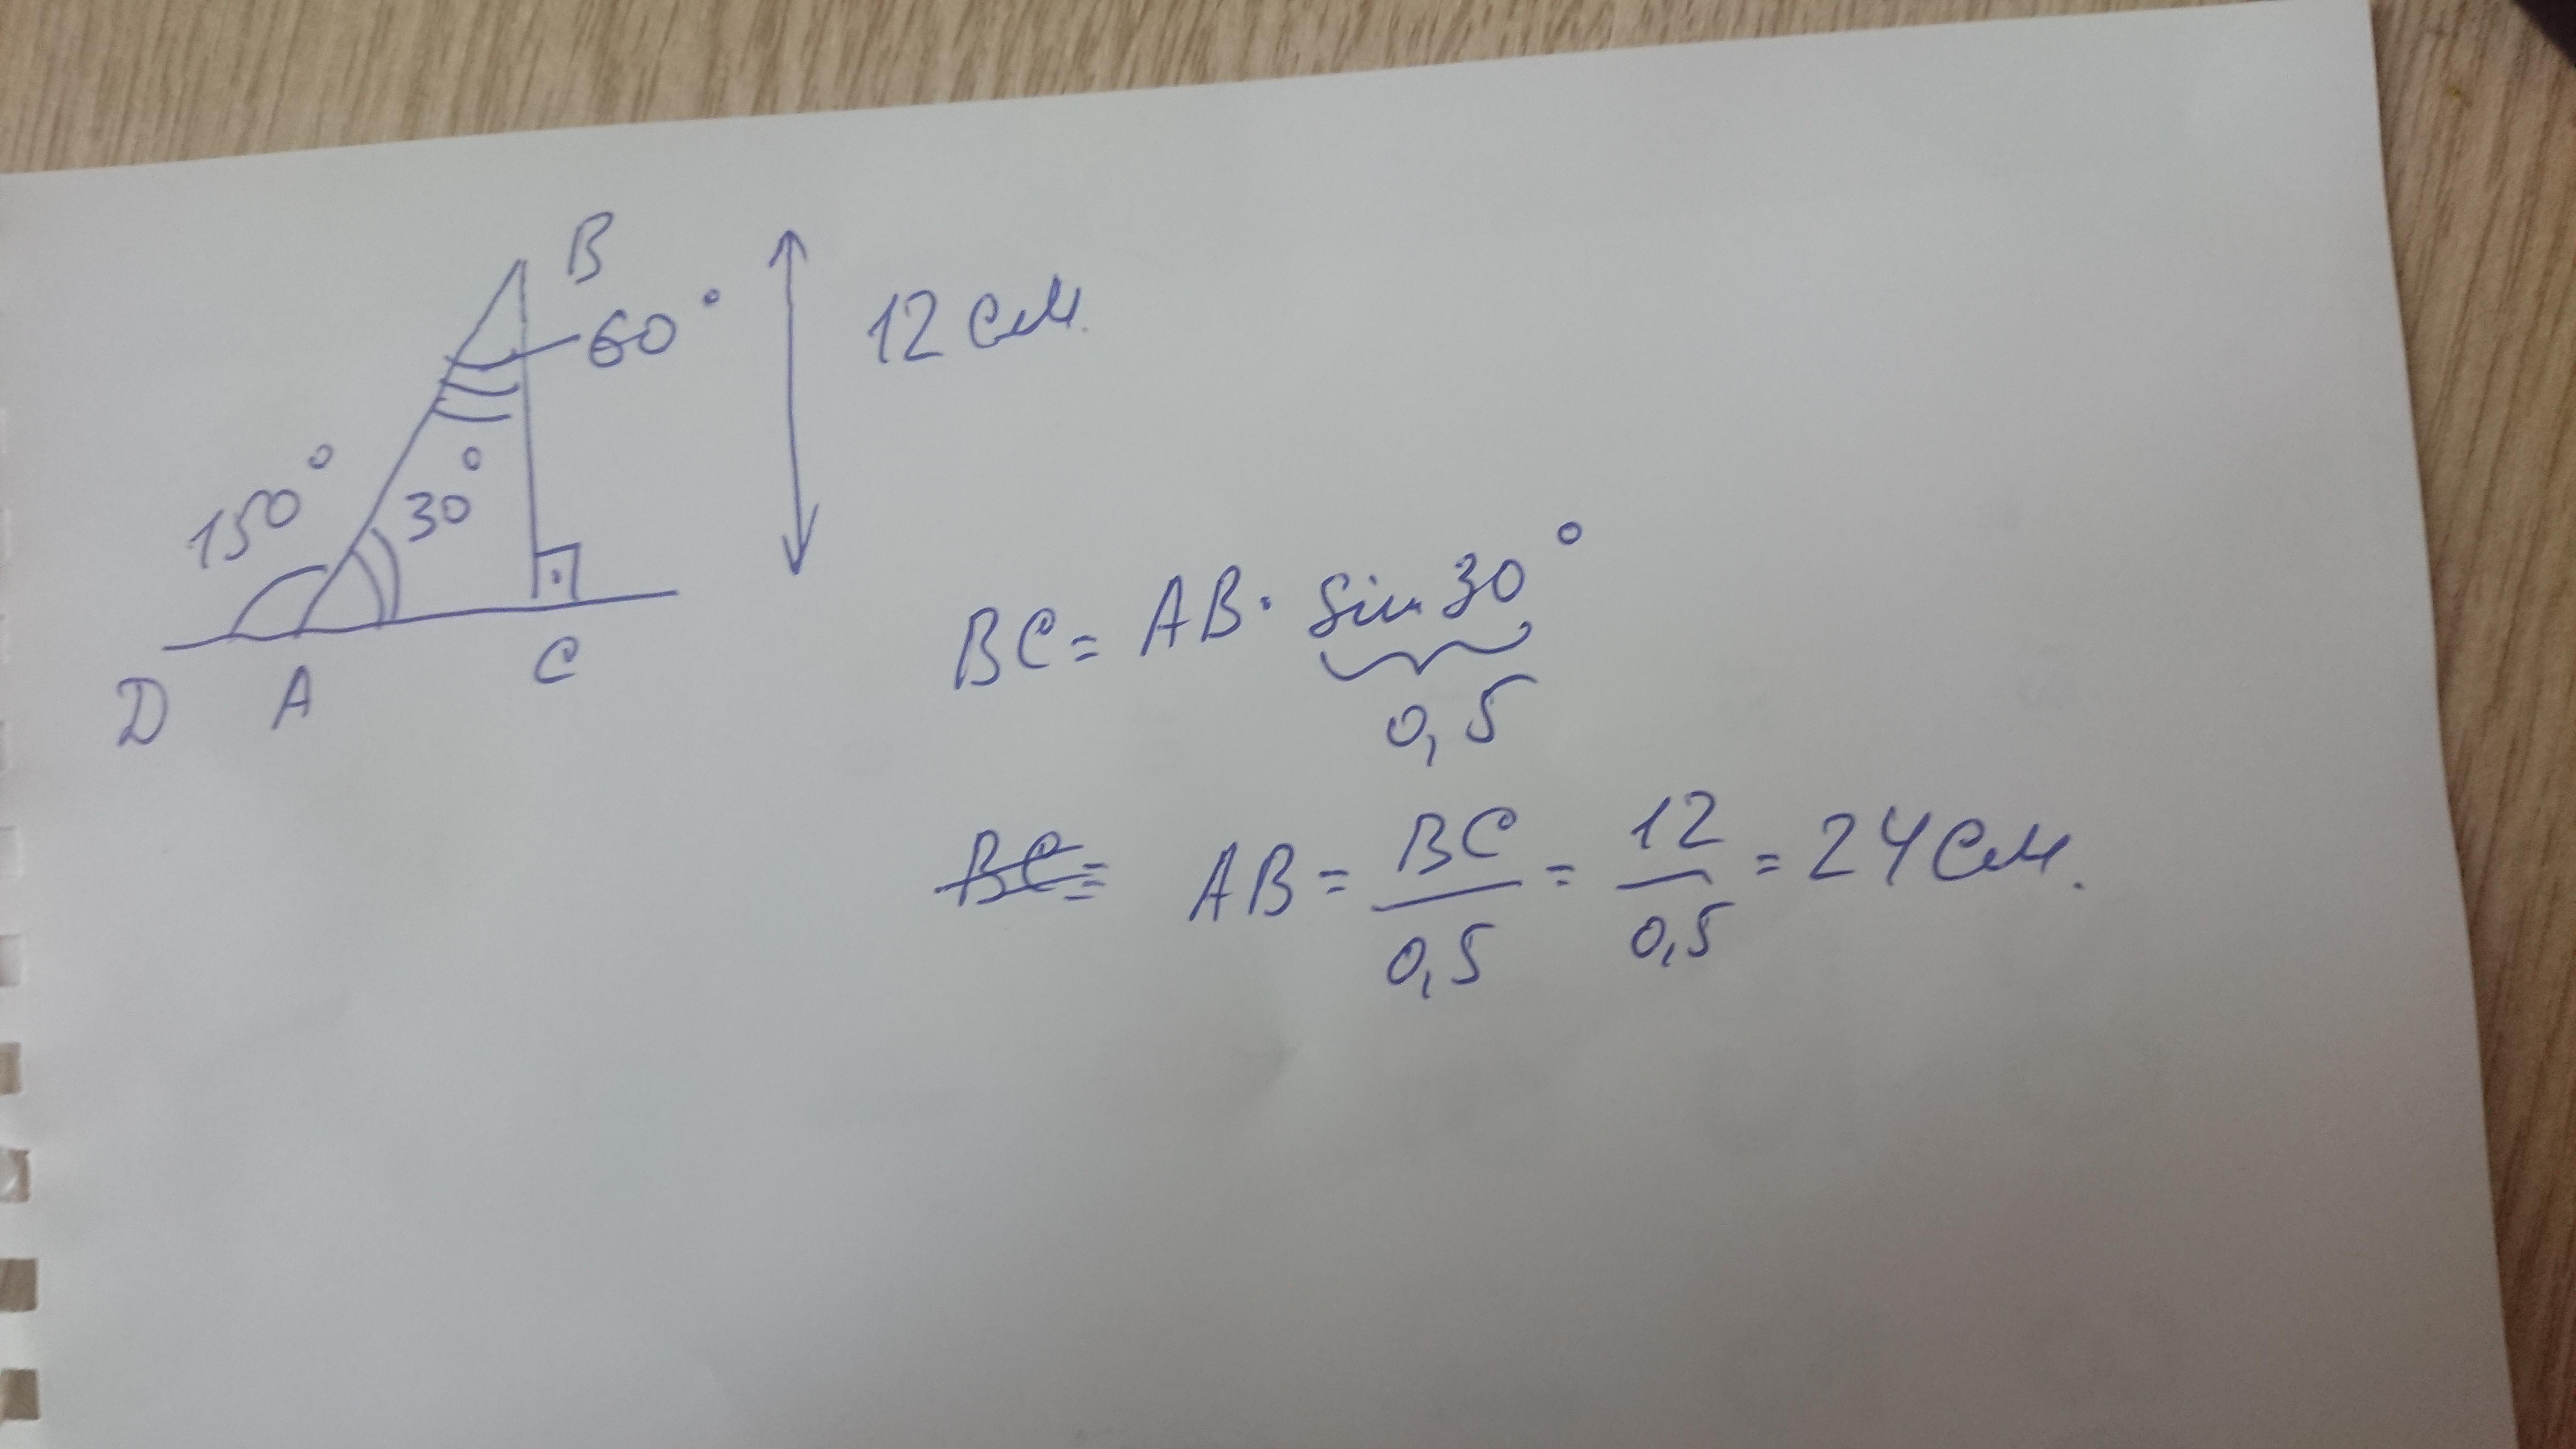 B
60°
12 см.
150°
30°
D A C
BC = AB · sin 30°
0,5
BC= AB = BC/0,5 = 12/0,5 = 24 см.